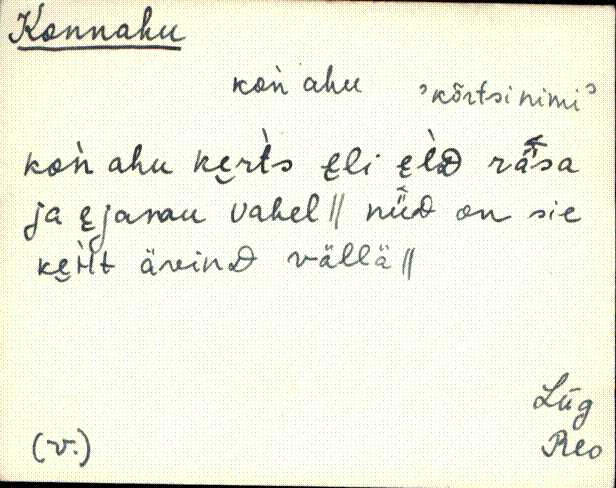 Konnahu
kon̆̀ ahu 'kõrtsi nimi'
kon̆̀ ahu ke̮rt̀s e̮li e̮l̀D rä̆sa
ja e̮janau vahel || nüüD on sie
ke̮rìt ärvinD vällä ||
Lüg
(v.) Reo